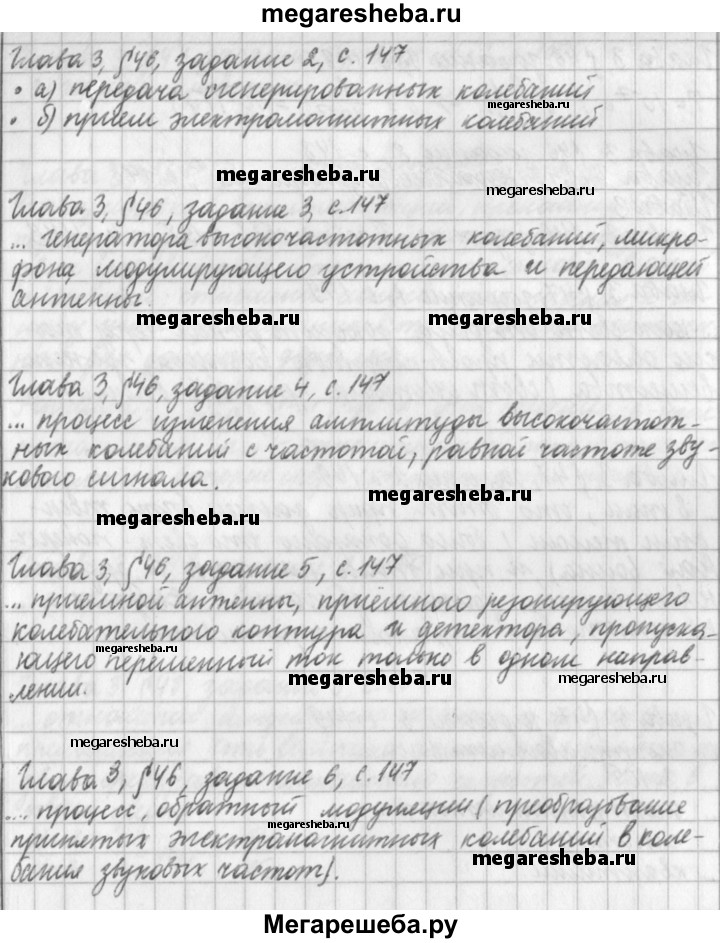 megaresheba.ru
Глава 3, §46, задание 2, с. 147
• а) передача сгенерированных колебаний
megaresheba.ru
• б) приём электромагнитных колебаний
megaresheba.ru
megaresheba.ru
Глава 3, §46, задание 3, с. 147
... генератора высокочастотных колебаний, микро-
фона, модулирующего устройства и передающей
антенны.
megaresheba.ru megaresheba.ru
Глава 3, §46, задание 4, с. 147
... процесс изменения амплитуды высокочастот-
ных колебаний с частотой, равной частоте зву-
кового сигнала.
megaresheba.ru
megaresheba.ru
Глава 3, §46, задание 5, с. 147
... приемной антенны, приёмного резонирующего
колебательного контура и детектора, пропуска-
megaresheba.ru
ющего переменный ток только в одном направ-
лении.
megaresheba.ru megaresheba.ru
megaresheba.ru
Глава 3, §46, задание 6, с. 147
... процесс, обратный модуляции (преобразование
megaresheba.ru
принятых электромагнитных колебаний в коле-
бания звуковых частот).
megaresheba.ru
Мегарешеба.ру